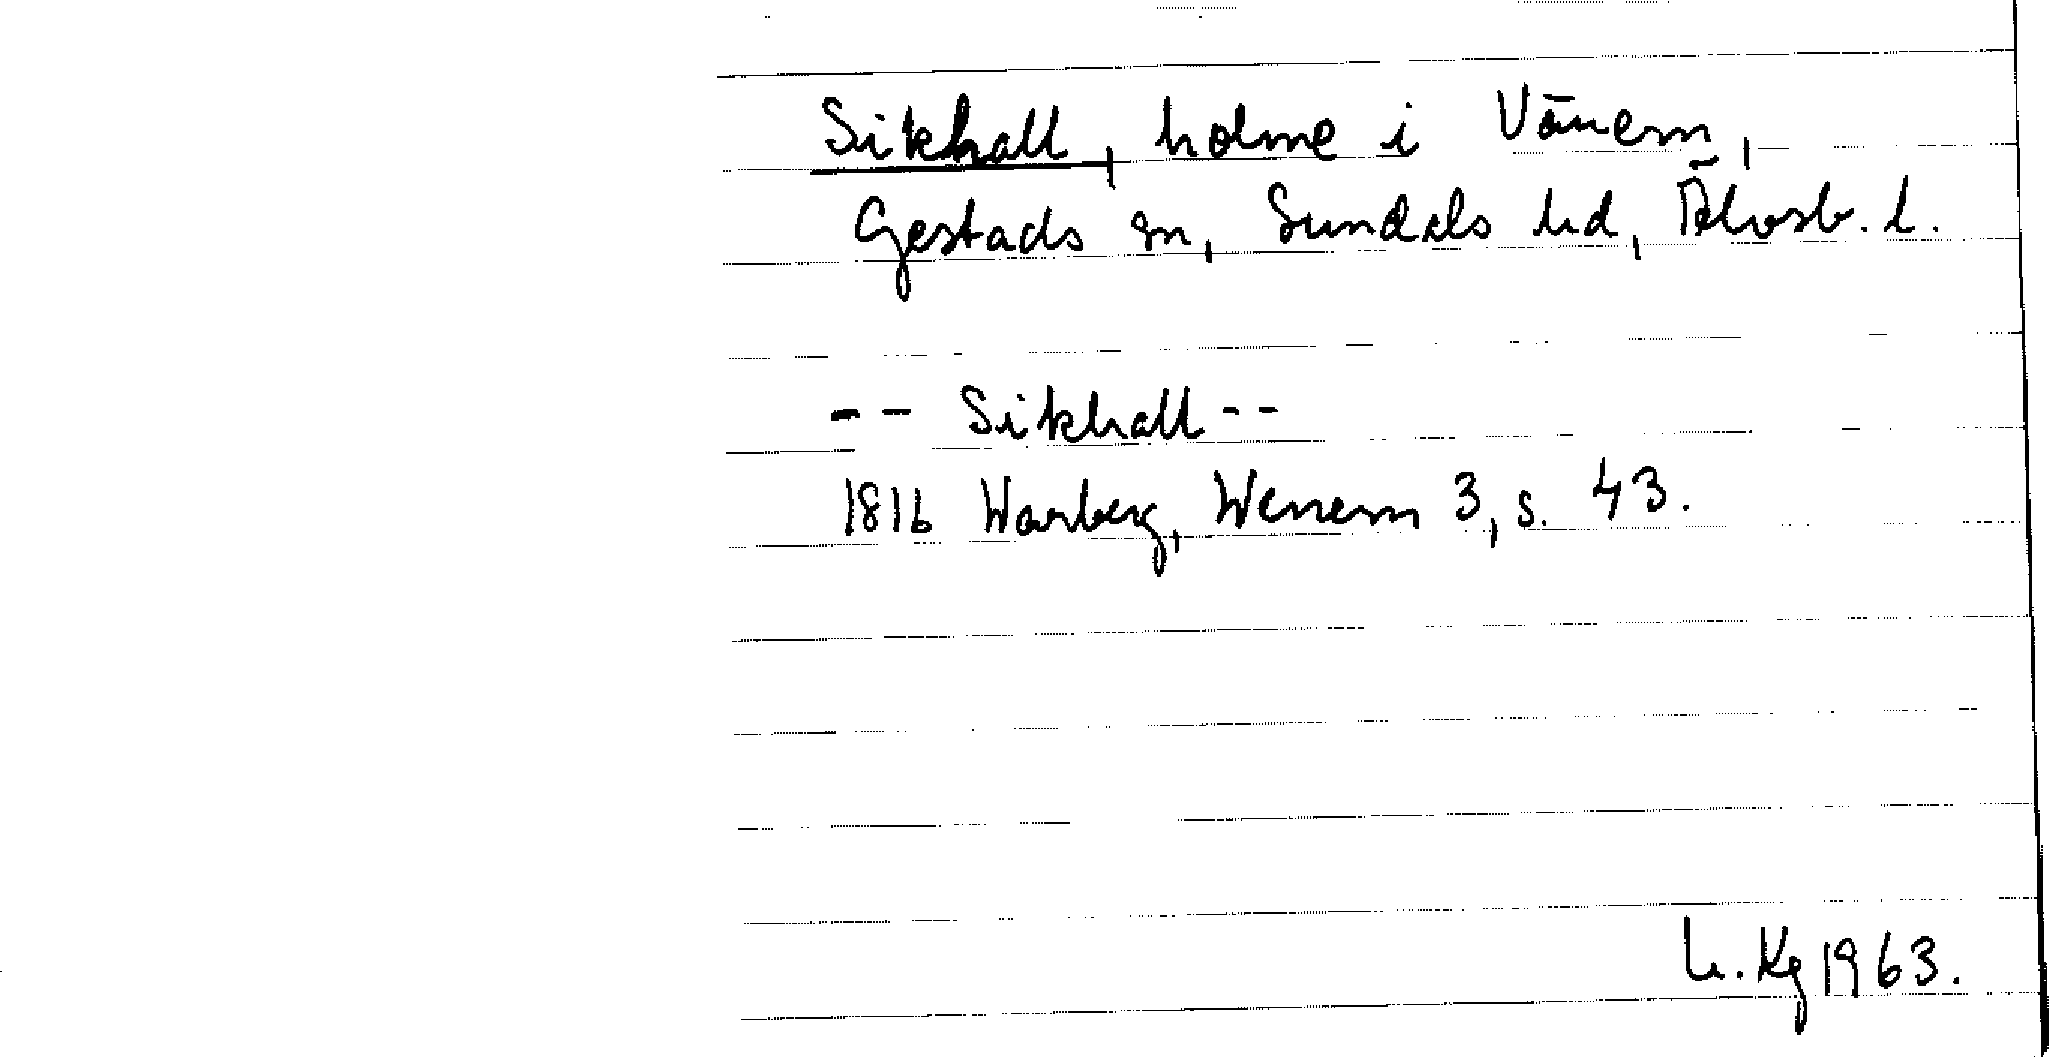 Sikhall, holme i Vänern,
Gestads sn, Sundals hd, Älvsb. l.
-- Sikhall --
1816 Warberg, Wenern 3, s. 43.
Kg 1963.